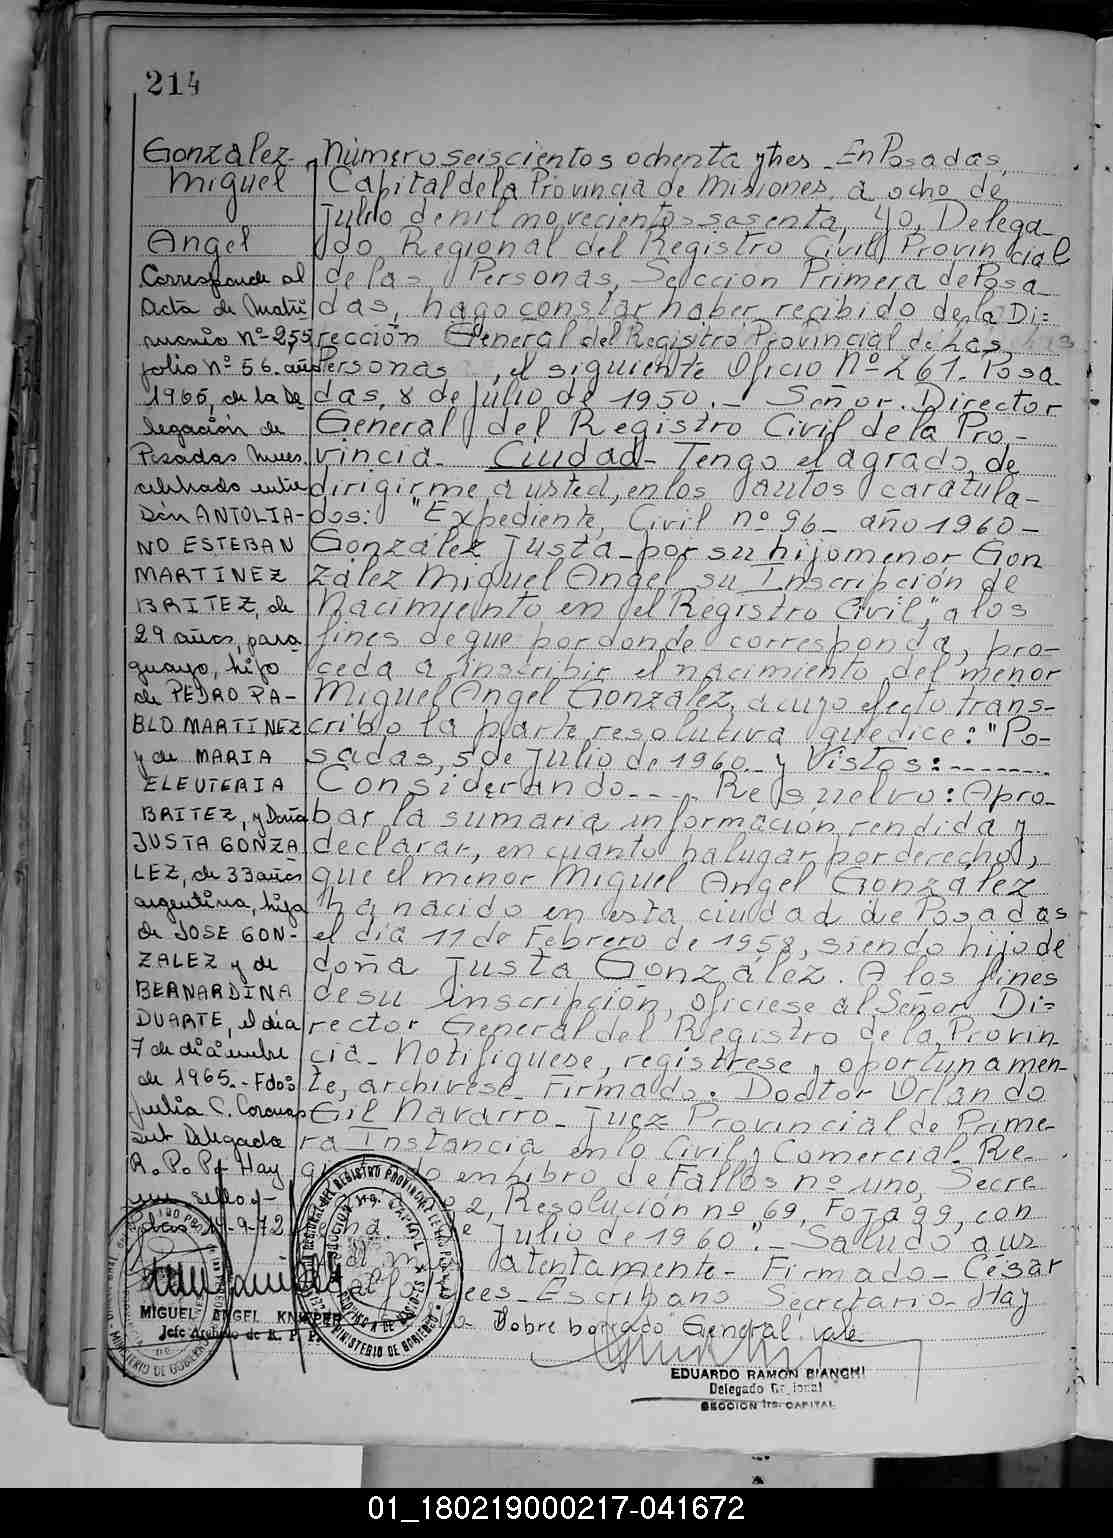 214
González
Miguel
Angel
Corresponde al
Acta de Matri
monio Nº 255
folio Nº 56. año
1965, de la De
legación de
Posadas Nues.
celebrado entre
Don ANTOLIA-
NO ESTEBAN
MARTINEZ
BRITEZ, de
29 años, para
guayo, hijo
de PEDRO PA-
BLO MARTINEZ
y de MARIA
ELEUTERIA
BRITEZ, y Doña
JUSTA GONZA
LEZ, de 33 años
argentina, hija
de JOSE GON-
ZALEZ y de
BERNARDINA
DUARTE, el día
7 de diciembre
de 1965.- Fdos
Julia C.
Sub Delegada
R. P. P. Hay
un sello.-
-9-72
MIGUEL ANGEL KNIPPER
Jefe Archivo de R. P. P.
Número seiscientos ochenta y tres - En Posadas,
Capital de la Provincia de Misiones, a ocho de
Julio de mil novecientos sesenta, yo, Delega-
do Regional del Registro Civil Provincial
de las Personas, Sección Primera de Posa-
das, hago constar haber recibido de la Di=
rección General del Registro Provincial de Las
Personas, el siguiente Oficio Nº 261. Posa-
das, 8 de Julio de 1950.- Señor Director
General del Registro Civil de la Pro-
vincia - Ciudad - Tengo el agrado de
dirigirme a usted, en los autos caratula-
dos: "Expediente Civil nº 96 - año 1960 -
González Justa - por su hijo menor Gon
zález Miguel Angel su Inscripción de
Nacimiento en el Registro Civil", a los
fines de que por donde corresponda, pro-
ceda a inscribir el nacimiento del menor
Miguel Angel González, a cuyo efecto trans-
cribo la parte resolutiva que dice: "Po-
sadas, 5 de Julio de 1960 - y Vistos: -------
Considerando - - - Resuelvo: Apro-
bar la sumaria información rendida y
declarar, en cuanto ha lugar por derecho,
que el menor Miguel Angel González
ha nacido en esta ciudad de Posadas
el día 11 de Febrero de 1958, siendo hijo de
doña Justa González. A los fines
de su inscripción, ofíciese al Señor Di=
rector General del Registro de la Provin-
cia - Notifíquese, regístrese y oportunamen-
te, archívese - Firmado: Doctor Orlando
Gil Navarro - Juez Provincial de Prime-
ra Instancia en lo Civil y Comercial. Re-
en Libro de Fallos nº uno, Secre
2, Resolución nº 69, Foja 99, con
Julio de 1960" - Saludo a us
atentamente - Firmado - César
Escribano Secretario - Hay
Sobre borrado "General" vale
EDUARDO RAMON BIANCHI
Delegado Regional
SECCION 1ra. CAPITAL
01_180219000217-041672